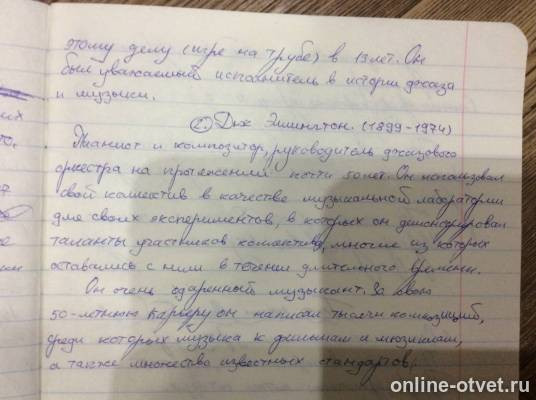 этому делу (игре на трубе) в 13 лет. Он
был уважаемый исполнитель в истории джаза
и музыки.
2. Дюк Эллингтон. (1899-1974)
Пианист и композитор, руководитель джазового
оркестра на протяжении почти 50 лет. Он использовал
свой коллектив в качестве музыкальной лаборатории
для своих экспериментов, в которых он демонстрировал
таланты участников коллектива, многие из которых
оставались с ним в течении длительного времени.
Он очень одаренный музыкант. За свою
50-летнюю карьеру он написал тысячи композиций,
среди которых музыка к фильмам и мюзиклам,
а также множество известных стандартов.
online-otvet.ru